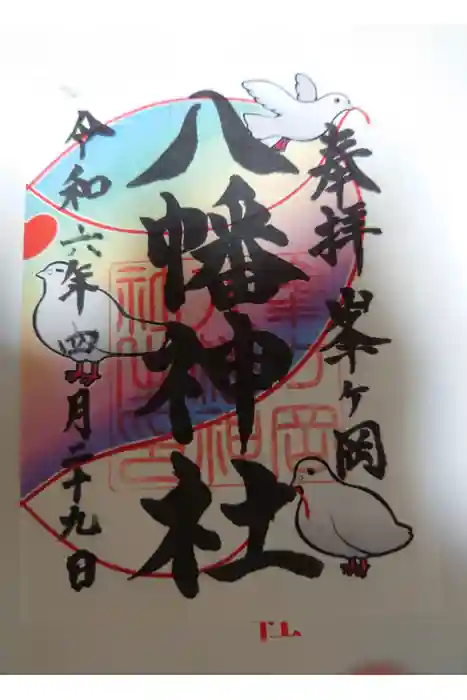 奉拝 峯ヶ岡
八幡神社
令和六年四月二十九日